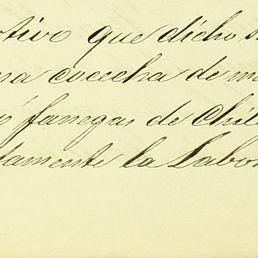 otivo que dicho s
na cocecha de m
ó fanegas de Chil
tamente la Labo